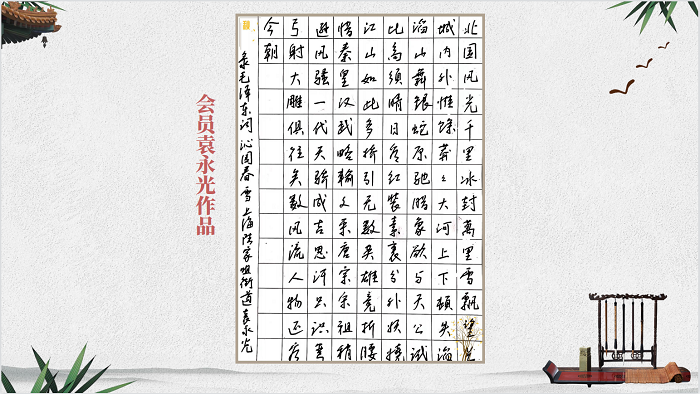 北国风光千里冰封萬里雪飘望长
城内外惟馀莽々大河上下顿失滔
滔山舞银蛇原驰腊象欲与天公试
比高须晴日看红装素裹分外妖娆
江山如此多娇引无数英雄竞折腰
惜秦皇汉武略输文采唐宗宋祖稍
逊风骚一代天骄成吉思汗只识弯
弓射大雕俱往矣数风流人物还看
今朝
录毛泽东词 沁园春 雪 上海陆家咀街道袁永光
会员袁永光作品